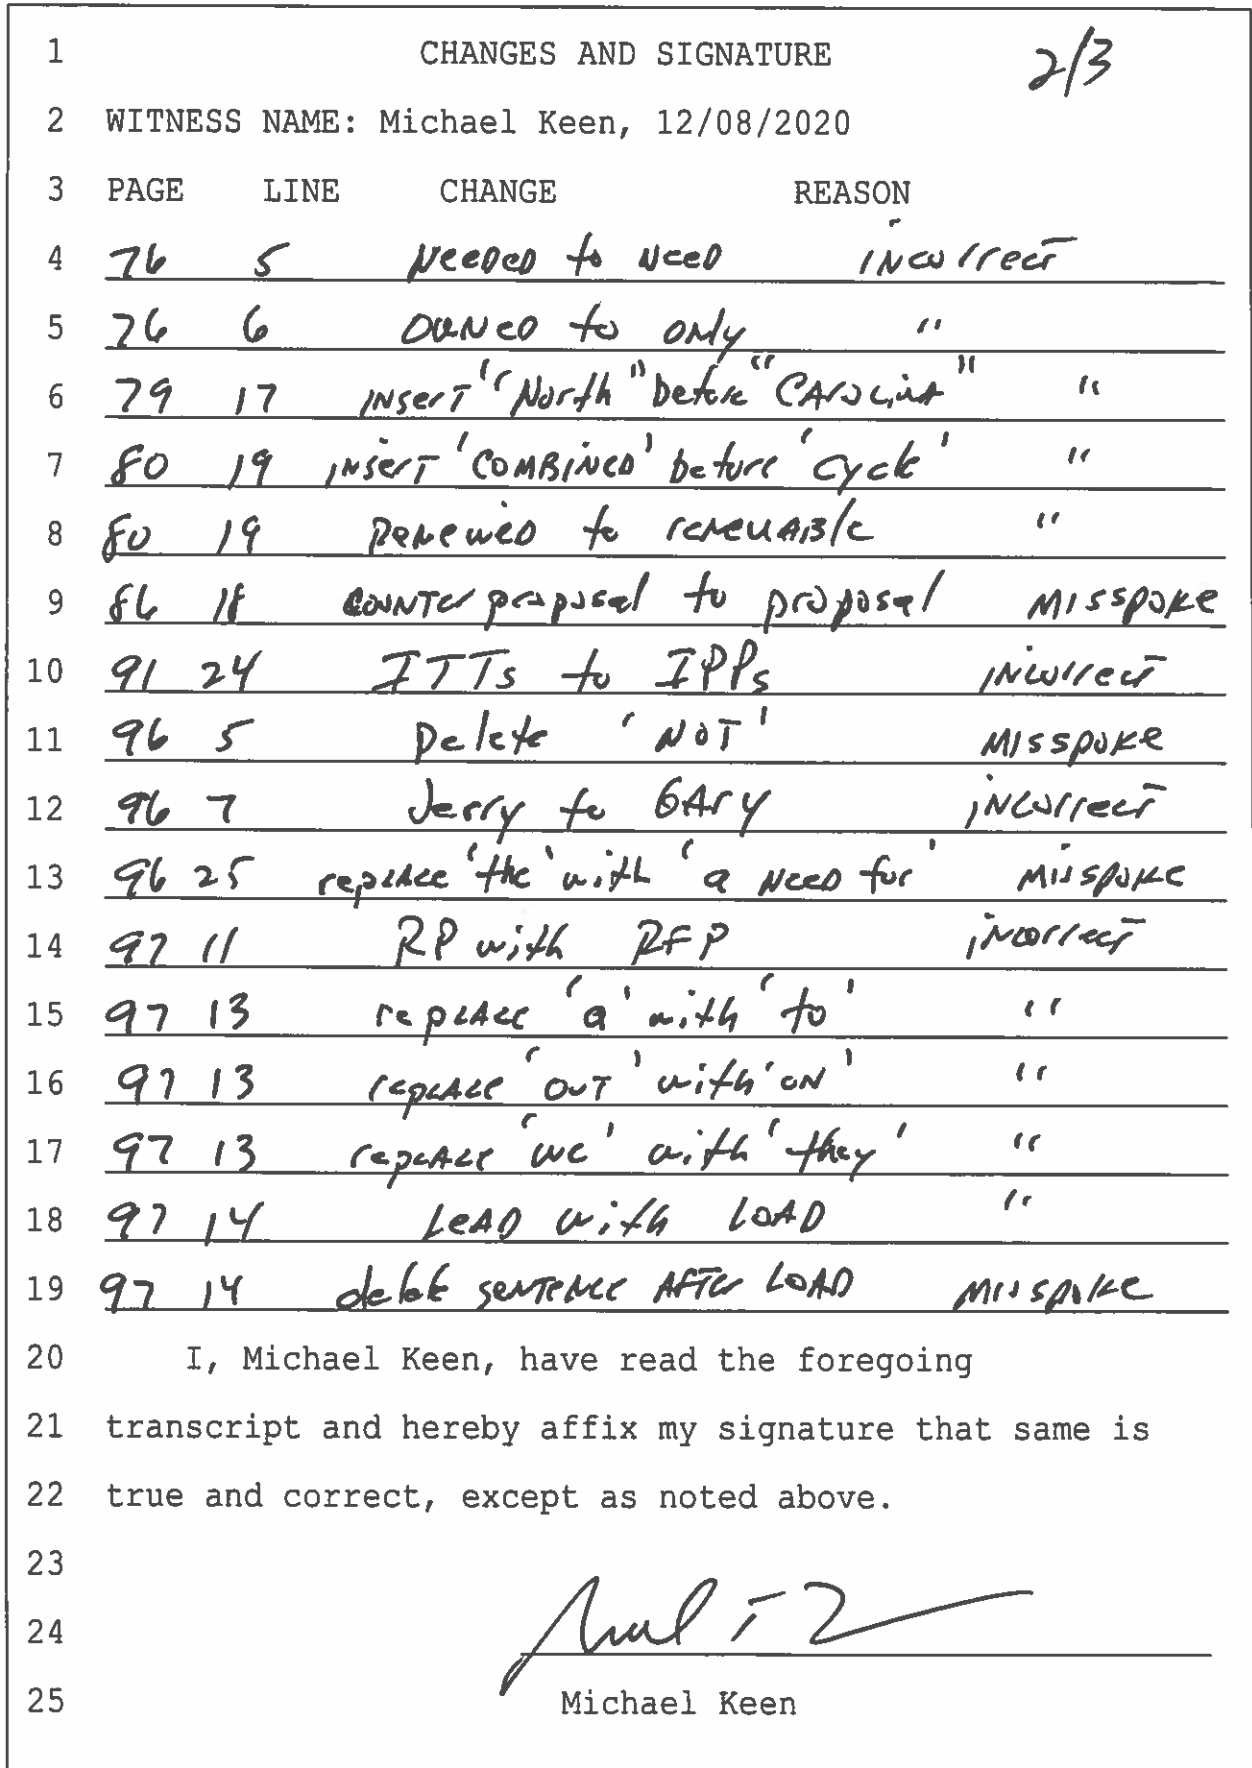 1 CHANGES AND SIGNATURE 2/3
2 WITNESS NAME: Michael Keen, 12/08/2020
3 PAGE LINE CHANGE REASON
4 76 5 Needed to Need incorrect
5 76 6 owned to only "
6 79 17 insert "North" before "Carolina" "
7 80 19 insert 'combined' before 'cycle' "
8 80 19 Renewed to renewable "
9 86 18 counter proposal to proposal misspoke
10 91 24 ITTs to IPPs incorrect
11 96 5 Delete 'NOT' misspoke
12 96 7 Jerry to Gary incorrect
13 96 25 replace 'the' with 'a need for' misspoke
14 97 11 RP with RFP incorrect
15 97 13 replace 'a' with 'to' "
16 97 13 replace 'out' with 'on' "
17 97 13 replace 'we' with 'they' "
18 97 14 Lead with Load "
19 97 14 delete sentence after Load misspoke
20 I, Michael Keen, have read the foregoing
21 transcript and hereby affix my signature that same is
22 true and correct, except as noted above.
23
24
25 Michael Keen